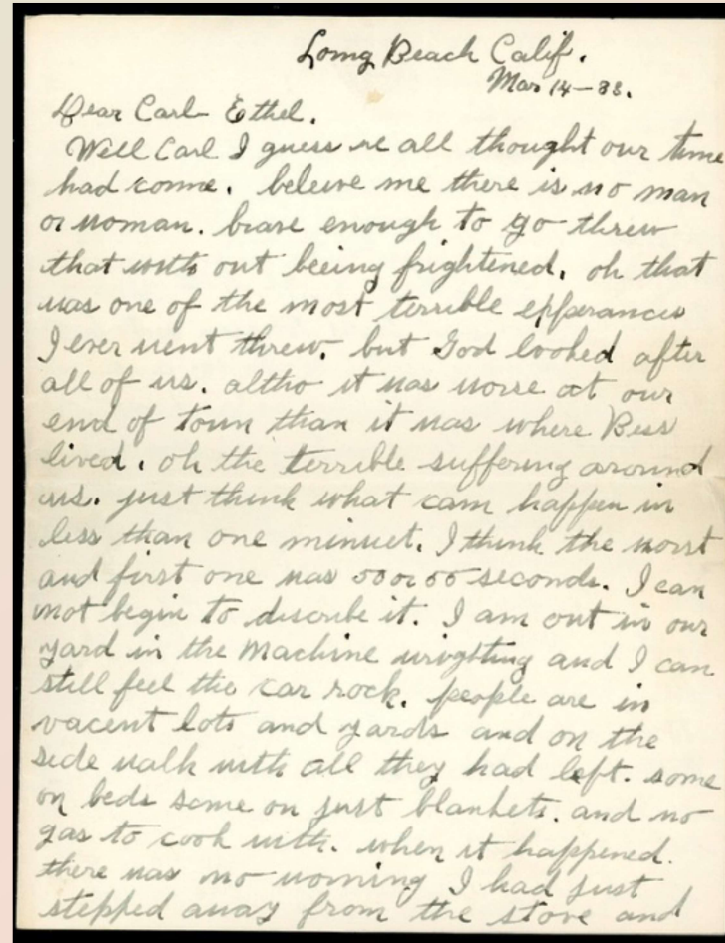 Long Beach Calif.
Mar 14-33.
Dear Carl Ethel.
Well Carl I guess we all thought our time
had come. beleive me there is no man
or woman. brave enough to go threw
that with out beeing frightined. oh that
was one of the most terrible experances
I ever went threw. but God looked after
all of us. altho it was worse at our
end of town than it was where Bess
lived. oh the terrible suffering around
us. just think what can happen in
less than one minuet. I think the worst
and first one was 50 or 55 seconds. I can
not begin to discribe it. I am out in our
yard in the machine wrighting and I can
still feel the car rock. people are in
vacent lots and yards and on the
side walk with all they had left. some
on beds some on just blankets. and no
gas to cook with. when it happened.
there was no worning I had just
stepped away from the stove and